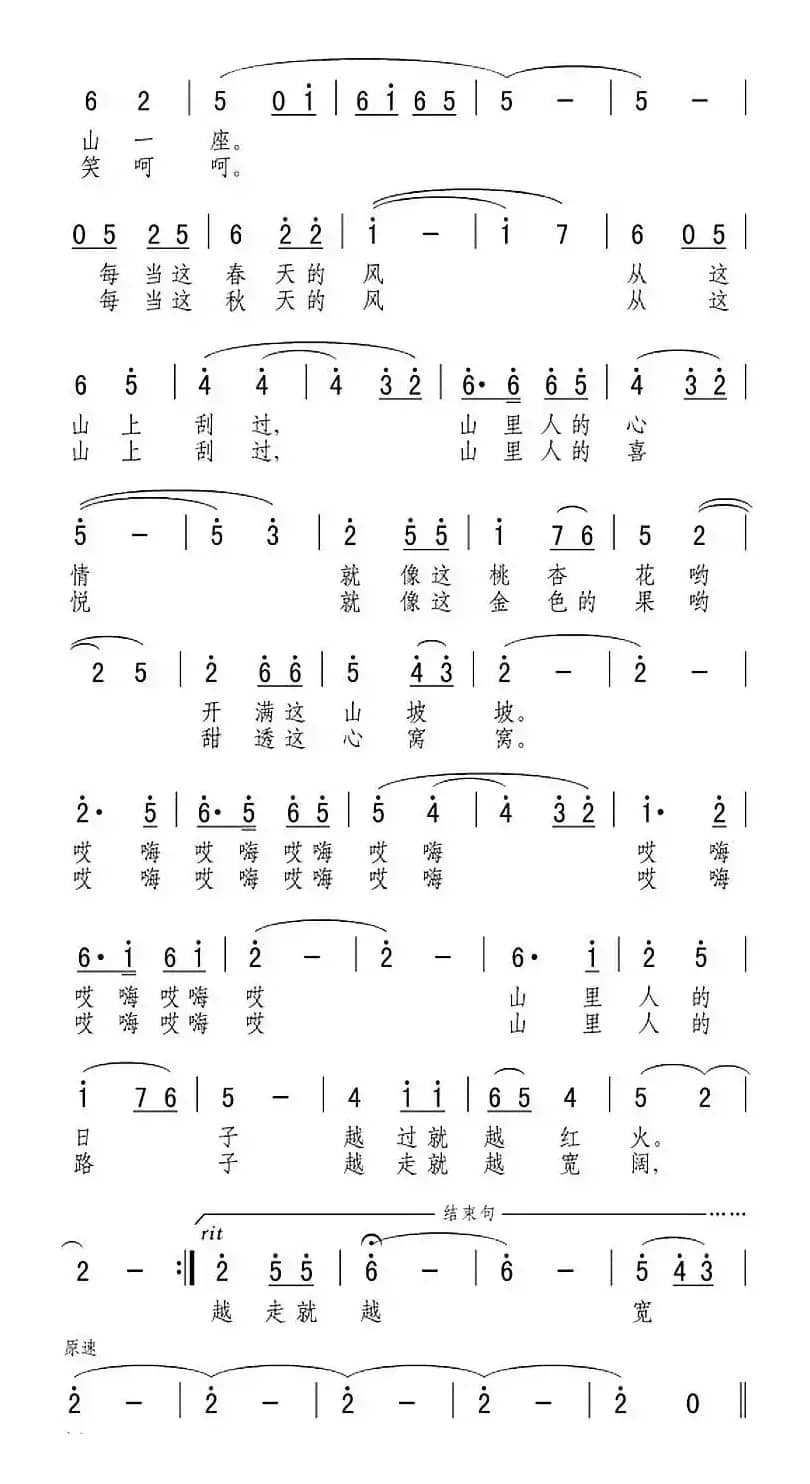 6 2 | 5 0 i | 6 i 6 5 | 5 – | 5 – |
山 一 座。
笑 呵 呵。
0 5 2 5 | 6 2 2 | i – | i 7 | 6 0 5 |
每 当 这 春 天 的 风 从 这
每 当 这 秋 天 的 风 从 这
6 5 | 4 4 | 4 3 2 | 6· 6 6 5 | 4 3 2 |
山 上 刮 过, 山 里 人 的 心
山 上 刮 过, 山 里 人 的 喜
5 – | 5 3 | 2 5 5 | i 7 6 | 5 2 |
情 就 像 这 桃 杏 花 哟
悦 就 像 这 金 色 的 果 哟
2 5 | 2 6 6 | 5 4 3 | 2 – | 2 – |
开 满 这 山 坡 坡。
甜 透 这 心 窝 窝。
2· 5 | 6· 5 6 5 | 5 4 | 4 3 2 | i· 2 |
哎 嗨 哎 嗨 哎 嗨 哎 嗨 哎 嗨
哎 嗨 哎 嗨 哎 嗨 哎 嗨 哎 嗨
6· i 6 i | 2 – | 2 – | 6· i | 2 5 |
哎 嗨 哎 嗨 哎 山 里 人 的
哎 嗨 哎 嗨 哎 山 里 人 的
i 7 6 | 5 – | 4 i i | 6 5 4 | 5 2 |
日 子 越 过 就 越 红 火。
路 子 越 走 就 越 宽 阔,
rit 结束句 ……
2 – :| 2 5 5 | 6 – | 6 – | 5 4 3 |
越 走 就 越 宽
原速
2 – | 2 – | 2 – | 2 – | 2 0 ||